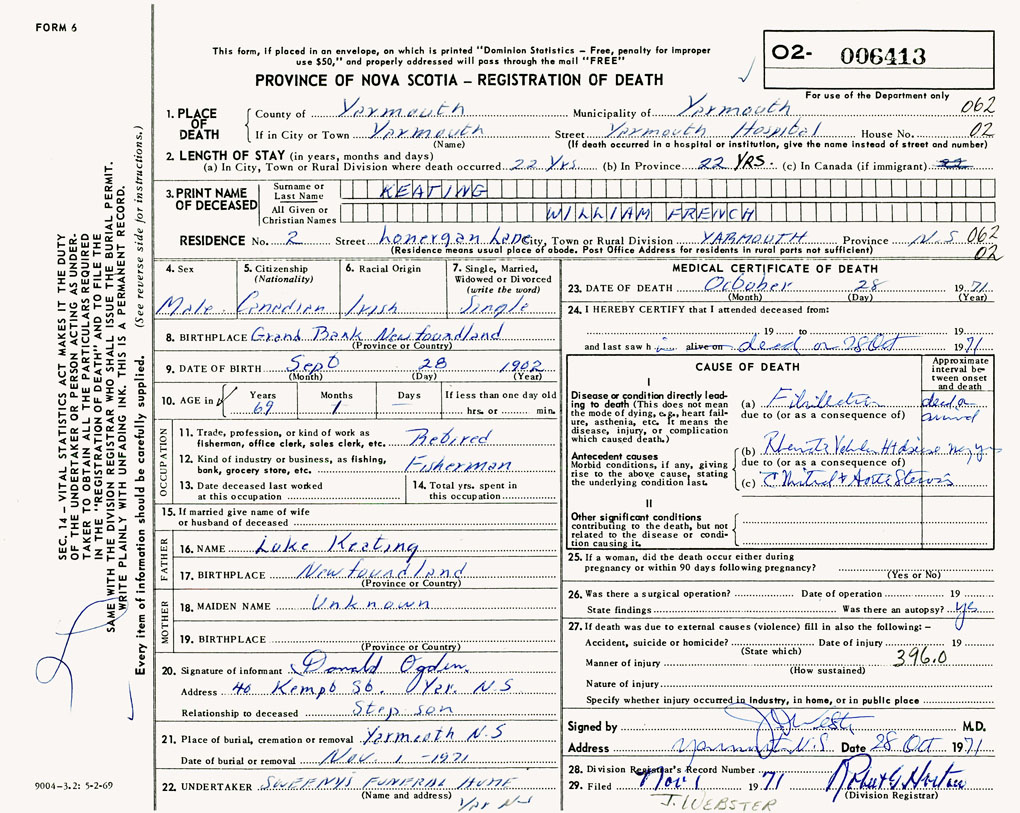 FORM 6
This form, if placed in an envelope, on which is printed "Dominion Statistics – Free, penalty for improper
use $50," and properly addressed will pass through the mail "FREE"
PROVINCE OF NOVA SCOTIA – REGISTRATION OF DEATH
02- 006413
For use of the Department only
SEC. 14 – VITAL STATISTICS ACT MAKES IT THE DUTY
OF THE UNDERTAKER OR PERSON ACTING AS UNDER-
TAKER TO OBTAIN ALL THE PARTICULARS REQUIRED
IN THE "REGISTRATION OF DEATH" AND TO FILE THE
SAME WITH THE DIVISION REGISTRAR WHO SHALL ISSUE THE BURIAL PERMIT.
WRITE PLAINLY WITH UNFADING INK. THIS IS A PERMANENT RECORD.
Every item of information should be carefully supplied. (See reverse side for instructions.)
1. PLACE OF DEATH County of Yarmouth Municipality of Yarmouth 062
If in City or Town Yarmouth Street Yarmouth Hospital House No. 02
(Name) (If death occurred in a hospital or institution, give the name instead of street and number)
2. LENGTH OF STAY (in years, months and days)
(a) In City, Town or Rural Division where death occurred 22 Yrs. (b) In Province 22 YRS. (c) In Canada (if immigrant) 22
3. PRINT NAME OF DECEASED Surname or Last Name KEATING
All Given or Christian Names WILLIAM FRENCH
RESIDENCE No. 2 Street Lonergan Lane City, Town or Rural Division YARMOUTH Province N.S 062
(Residence means usual place of abode. Post Office Address for residents in rural parts not sufficient) 02
4. Sex Male
5. Citizenship (Nationality) Canadian
6. Racial Origin Irish
7. Single, Married, Widowed or Divorced (write the word) Single
8. BIRTHPLACE Grand Bank Newfoundland
(Province or Country)
9. DATE OF BIRTH Sept 28 1902
(Month) (Day) (Year)
10. AGE in Years 69 Months 1 Days – If less than one day old hrs. or min.
OCCUPATION
11. Trade, profession, or kind of work as fisherman, office clerk, sales clerk, etc. Retired
12. Kind of industry or business, as fishing, bank, grocery store, etc. Fisherman
13. Date deceased last worked at this occupation
14. Total yrs. spent in this occupation
15. If married give name of wife or husband of deceased
FATHER
16. NAME Luke Keating
17. BIRTHPLACE Newfoundland
(Province or Country)
MOTHER
18. MAIDEN NAME Unknown
19. BIRTHPLACE
(Province or Country)
20. Signature of informant Donald Ogden
Address 40 Kempt St. Yar. N.S
Relationship to deceased Step son
21. Place of burial, cremation or removal Yarmouth N.S
Date of burial or removal Nov. 1 -1971
22. UNDERTAKER SWEENY'S FUNERAL HOME
(Name and address) Yar N-S
9004-3.2: 5-2-69
MEDICAL CERTIFICATE OF DEATH
23. DATE OF DEATH October 28 1971
(Month) (Day) (Year)
24. I HEREBY CERTIFY that I attended deceased from:
19 to 19
and last saw him alive on dead on 28 Oct 1971
CAUSE OF DEATH
Approximate interval between onset and death
I
Disease or condition directly leading to death (This does not mean the mode of dying, e.g., heart failure, asthenia, etc. It means the disease, injury, or complication which caused death.)
(a) Fibrillation dead on
due to (or as a consequence of)
Antecedent causes
Morbid conditions, if any, giving rise to the above cause, stating the underlying condition last.
(b) Ht disease
due to (or as a consequence of)
(c) Mitral
II
Other significant conditions contributing to the death, but not related to the disease or condition causing it.
25. If a woman, did the death occur either during pregnancy or within 90 days following pregnancy?
(Yes or No)
26. Was there a surgical operation? Date of operation 19
State findings Was there an autopsy? yes
27. If death was due to external causes (violence) fill in also the following: –
Accident, suicide or homicide? Date of injury 19
(State which)
Manner of injury 396.0
(How sustained)
Nature of injury
Specify whether injury occurred in Industry, in home, or in public place
Signed by M.D.
Address Yarmouth N.S. Date 28 Oct 1971
28. Division Registrar's Record Number
29. Filed Nov 1 1971
(Division Registrar)
J. WEBSTER